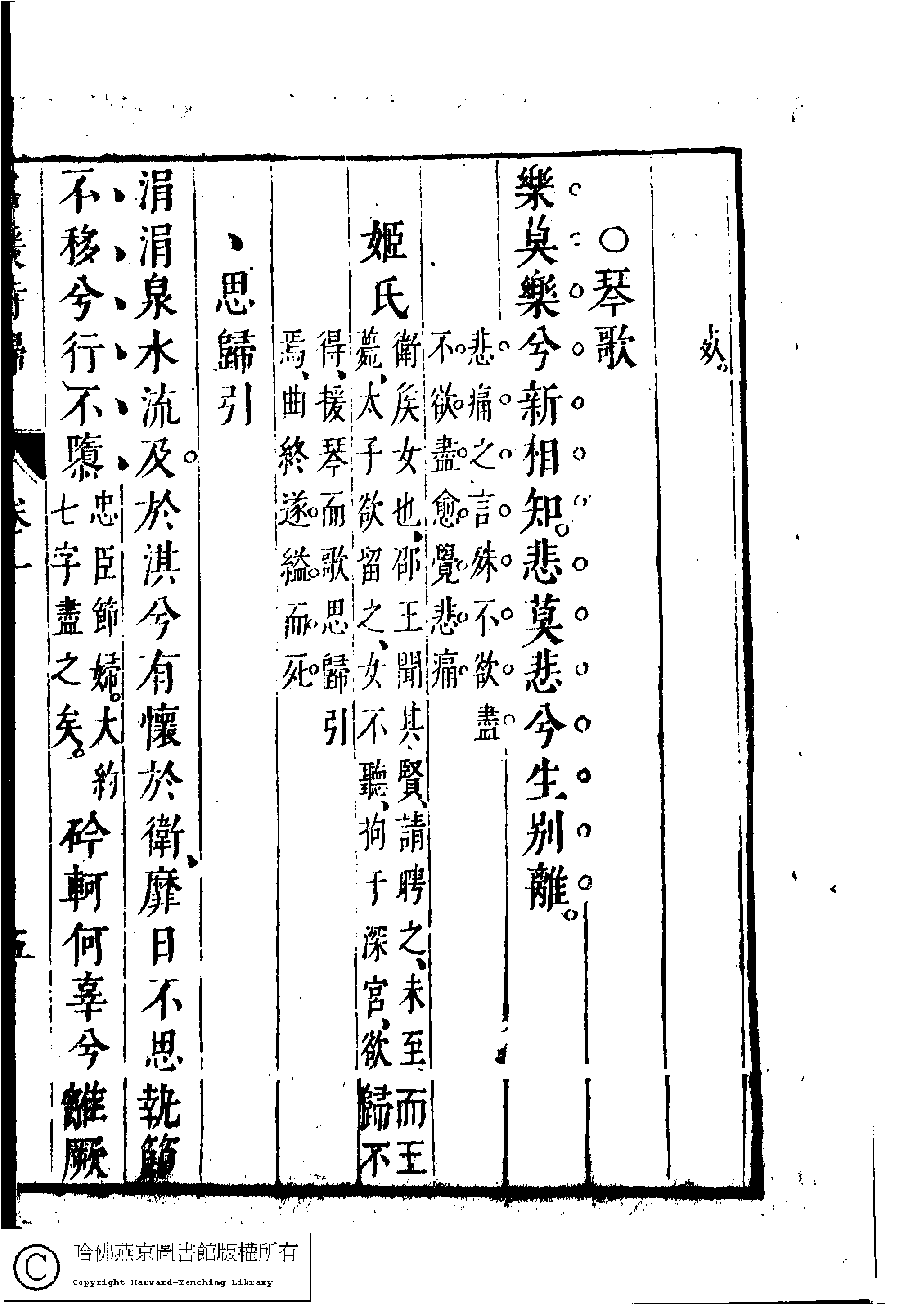 妖。
○琴歌
樂莫樂兮新相知。悲莫悲兮生別離。
悲痛之言殊不欲盡
不欲盡愈覺悲痛
姬氏
衛侯女也、邵王聞其賢、請聘之、未至而王
薨、太子欲留之、女不聽、拘于深宮、欲歸不
得、援琴而歌思歸引
焉、曲終遂縊而死。
、思歸引
涓涓泉水流及於淇兮有懷於衛、靡日不思執節
不移兮行不隳
忠臣節婦。大約
七字盡之矣。
砱軻何辜兮離厥
卷一
五
哈佛燕京圖書館版權所有
Copyright Harvard-Yenching Library